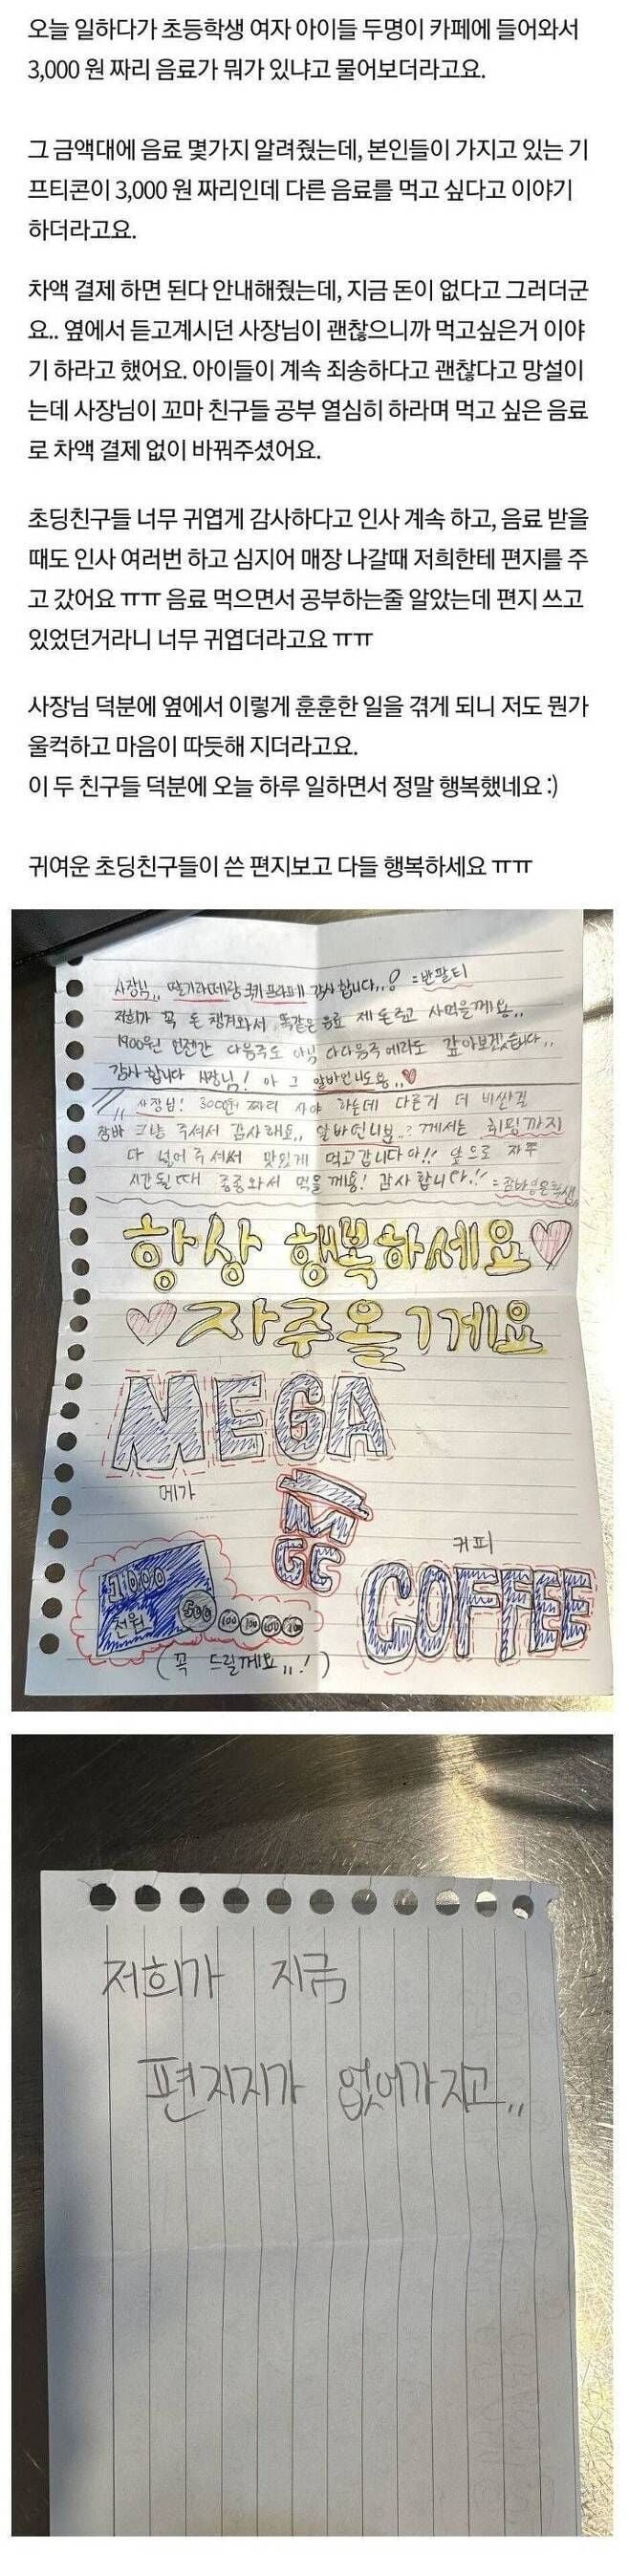 오늘 일하다가 초등학생 여자 아이들 두명이 카페에 들어와서
3,000 원 짜리 음료가 뭐가 있냐고 물어보더라고요.
그 금액대에 음료 몇가지 알려줬는데, 본인들이 가지고 있는 기
프티콘이 3,000 원 짜리인데 다른 음료를 먹고 싶다고 이야기
하더라고요.
차액 결제 하면 된다 안내해줬는데, 지금 돈이 없다고 그러더군
요.. 옆에서 듣고계시던 사장님이 괜찮으니까 먹고싶은거 이야
기 하라고 했어요. 아이들이 계속 죄송하다고 괜찮다고 망설이
는데 사장님이 꼬마 친구들 공부 열심히 하라며 먹고 싶은 음료
로 차액 결제 없이 바꿔주셨어요.
초딩친구들 너무 귀엽게 감사하다고 인사 계속 하고, 음료 받을
때도 인사 여러번 하고 심지어 매장 나갈때 저희한테 편지를 주
고 갔어요 ㅠㅠ 음료 먹으면서 공부하는줄 알았는데 편지 쓰고
있었던거라니 너무 귀엽더라고요 ㅠㅠ
사장님 덕분에 옆에서 이렇게 훈훈한 일을 겪게 되니 저도 뭔가
울컥하고 마음이 따듯해 지더라고요.
이 두 친구들 덕분에 오늘 하루 일하면서 정말 행복했네요 :)
귀여운 초딩친구들이 쓴 편지보고 다들 행복하세요 ㅠㅠ
사장님,, 딸기라떼랑 쿠키프라페 감사합니다,,! =반팔티
저희가 꼭 돈 챙겨와서 똑같은 음료 제 돈주고 사먹을께용,,
1900원 언젠간 다음주도 아님 다다음주에라도 갚아보겠습니다,,
감사합니다 사장님! 아 그 알바언니도용,,♥
사장님! 3000원 짜리 사야 하는데 다른거 더 비싼걸
그냥 주셔서 감사해요,, 알바언니분..? 께서는 휘핑까지
다 넣어주셔서 맛있게 먹고갑니다아!! 앞으로 자주
시간될때 종종와서 먹을께용! 감사합니다!!
항상 행복하세요♥
♥자주올게요
MEGA
메가
MGC
커피
COFFEE
1000
천원
500 100 100 100 100
(꼭 드릴께요,,!)
저희가 지금
편지지가 없어가지고,,